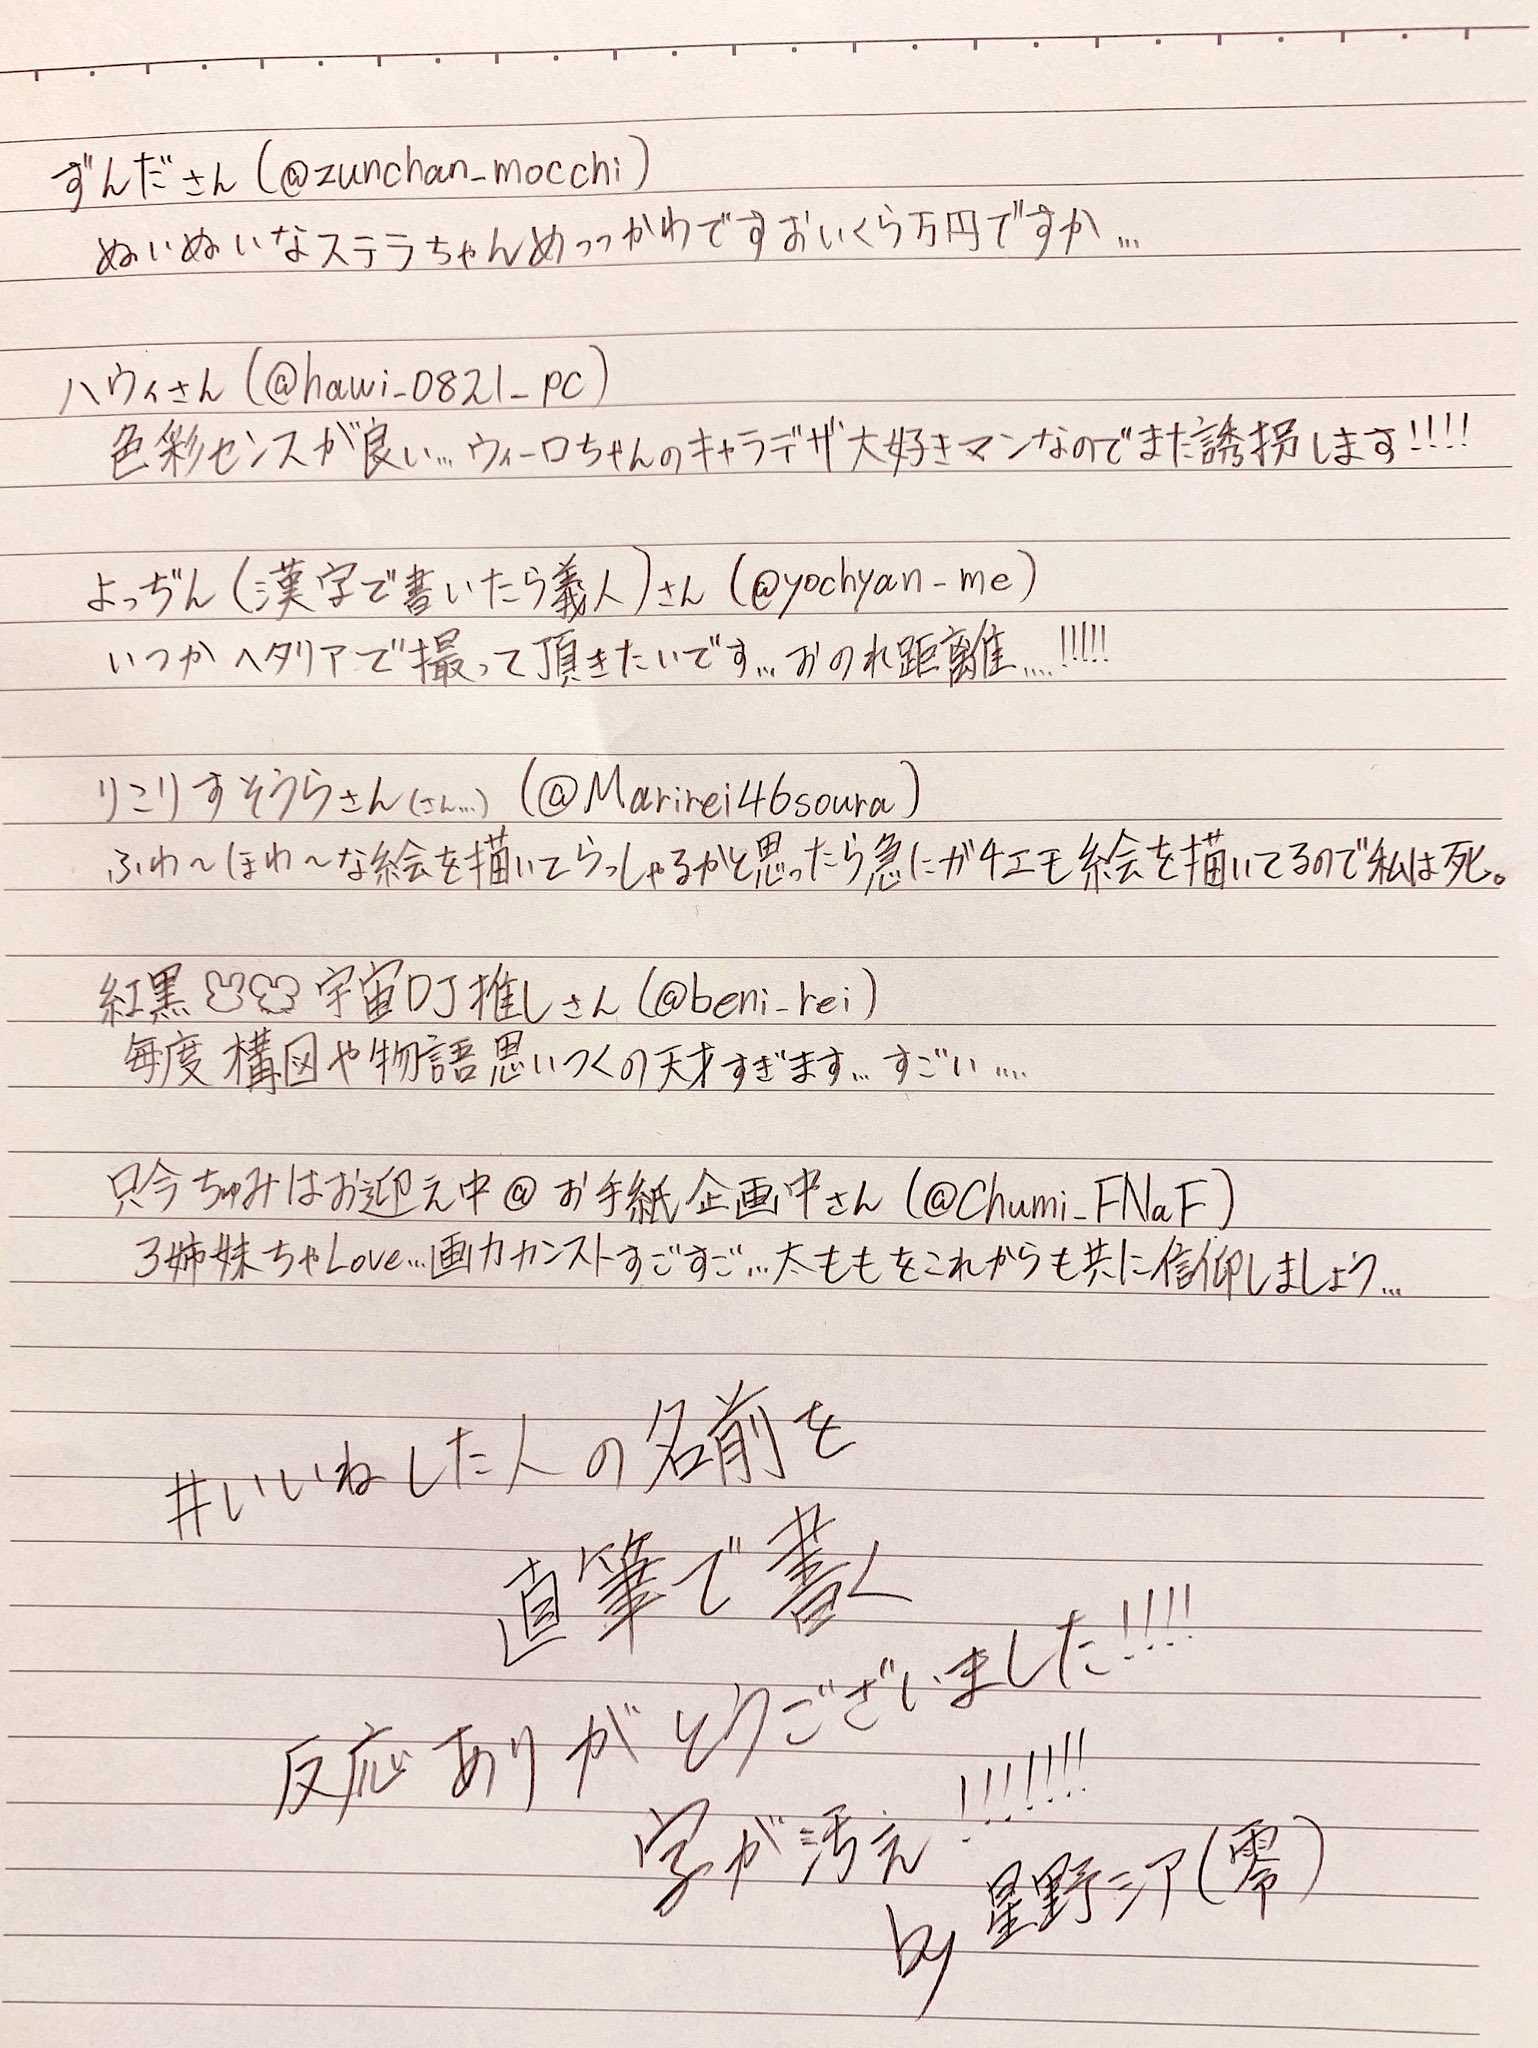 ずんださん(@zunchan_mocchi)
ぬいぬいなステラちゃんめっっかわですおいくら万円ですか…
ハウィさん(@hawi_0821_pc)
色彩センスが良い…ウィーロちゃんのキャラデザ大好きマンなのでまた誘拐します!!!!
よっぢん(漢字で書いたら義人)さん(@yochyan_me)
いつかヘタリアで撮って頂きたいです…おのれ距離….!!!!!
りこりすそうらさん(さん…)(@Marirei46soura)
ふわ～ほわ～な絵を描いてらっしゃるかと思ったら急にガチエモ絵を描いてるので私は死。
紅黒 宇宙DJ推しさん(@beni_rei)
毎度構図や物語思いつくの天才すぎます…すごい….
只今ちゅみはお迎え中@お手紙企画中さん(@Chumi_FNaF)
3姉妹ちゃLove…画力カンストすごすご…太ももをこれからも共に信仰しましょう…
#いいねした人の名前を
直筆で書く
反応ありがとうございました!!!!
字が汚え!!!!!!!
by 星野シア(零)